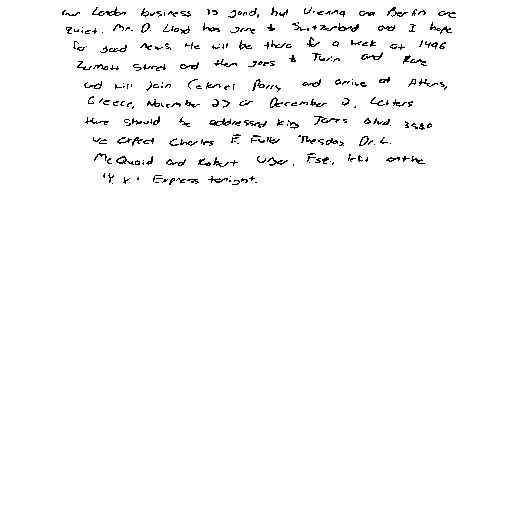 our London business is good, but Vienna and Berlin are
quiet. Mr. D. Lloyd has gone to Switzerland and I hope
for good news. He will be there for a week at 1496
Zermott Street and then goes to Turin and Rome
and will join Colonel Parry and arrive at Athens,
Greece, November 27 or December 2. Letters
there should be addressed King James Blvd. 3580
we expect Charles E. Fuller Tuesday. Dr. L.
McQuaid and Robert Unger, Esq., left on the
"Y. X" Express tonight.